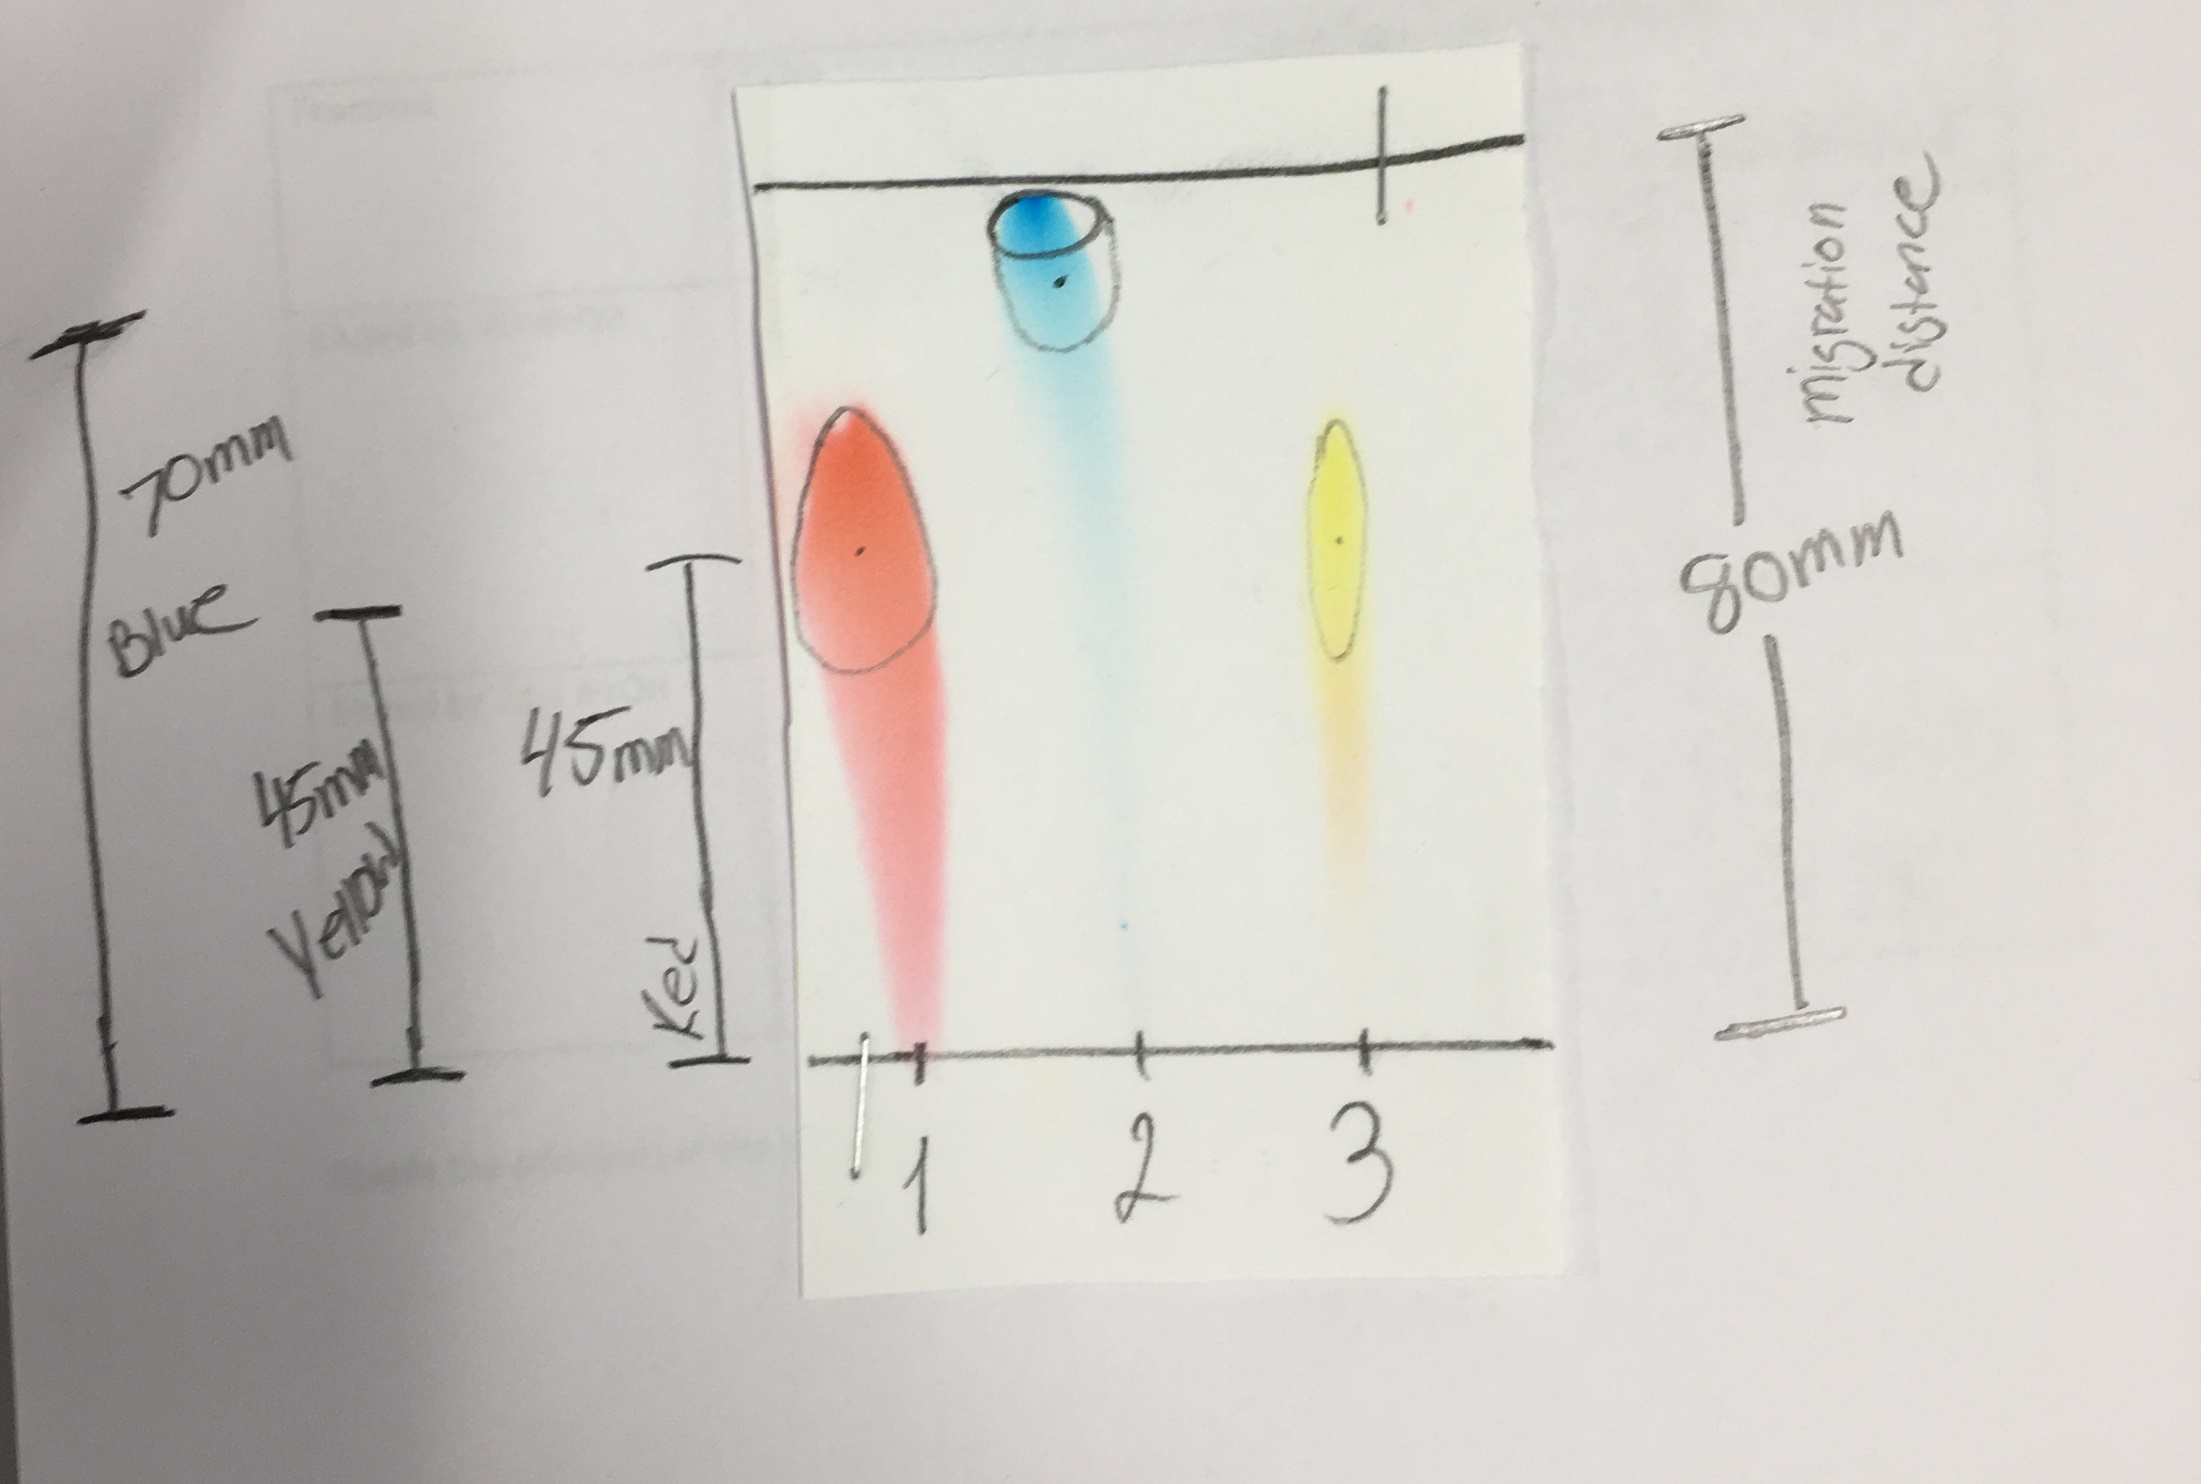 70mm
Blue
45mm
Yellow
45mm
Red
1 2 3
migration
distance
80mm